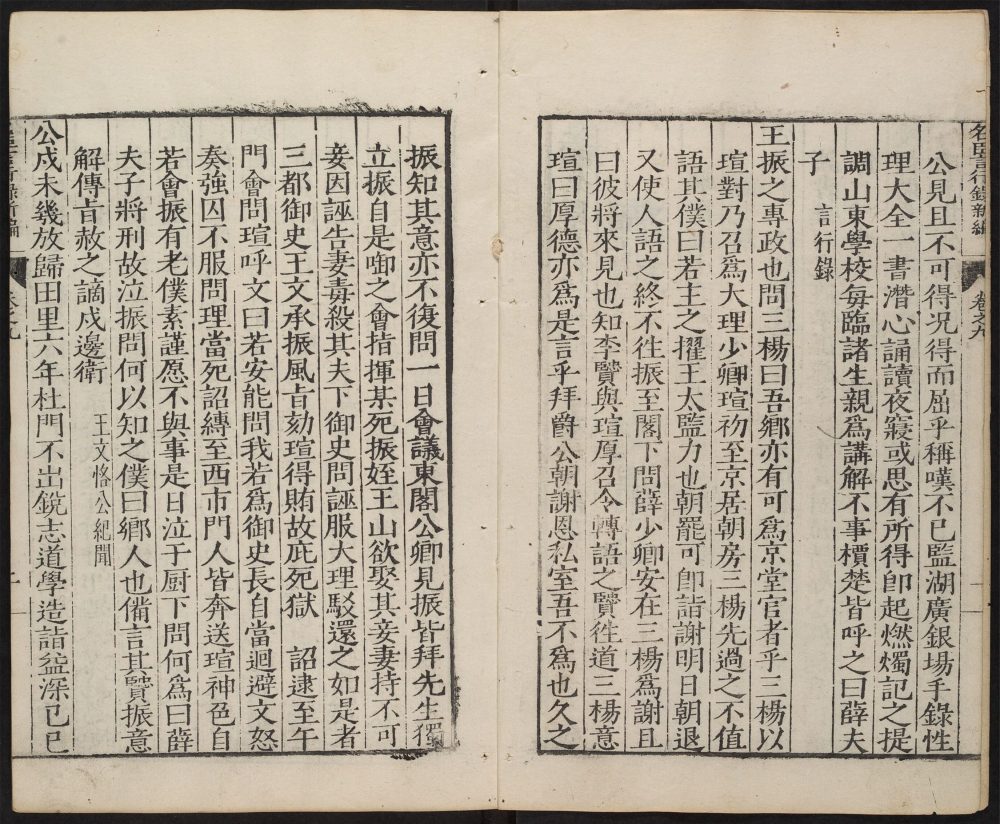 名臣言行錄新編 卷之九
公見且不可得况得而屈乎稱嘆不已監湖廣銀場手錄性
理大全一書潛心誦讀夜寢或思有所得卽起燃燭記之提
調山東學校每臨諸生親爲講解不事檟楚皆呼之曰薛夫
子 言行錄
王振之專政也問三楊曰吾鄉亦有可爲京堂官者乎三楊以
瑄對乃召爲大理少卿瑄初至京居朝房三楊先過之不值
語其僕曰若主之擢王太監力也朝罷可卽詣謝明日朝退
又使人語之終不徃振至閣下問薛少卿安在三楊爲謝且
曰彼將來見也知李賢與瑄厚召令轉語之賢徃道三楊意
瑄曰厚德亦爲是言乎拜爵公朝謝恩私室吾不爲也久之
振知其意亦不復問一日會議東閣公卿見振皆拜先生獨
立振自是啣之會指揮某死振姪王山欲娶其妾妻持不可
妾因誣告妻毒殺其夫下御史問誣服大理駁還之如是者
三都御史王文承振風旨劾瑄得賄故庇死獄 詔逮至午
門會問瑄呼文曰若安能問我若爲御史長自當迴避文怒
奏強囚不服問理當死詔縛至西市門人皆奔送瑄神色自
若會振有老僕素謹愿不與事是日泣于厨下問何爲曰薛
夫子將刑故泣振問何以知之僕曰鄉人也備言其賢振意
解傳旨赦之謫戍邊衛 王文恪公紀聞
公戍未幾放歸田里六年杜門不出銳志道學造詣益深己巳
言行錄新編 卷之九